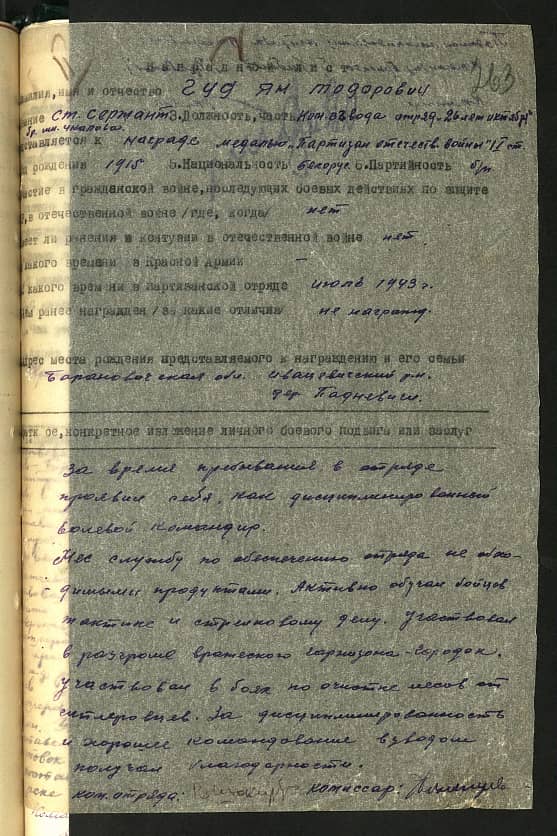 263
Наградной лист
Фамилия, имя и отчество Гуд Ян Тодорович
Звание ст. сержант 3. Должность, часть Ком. взвода отряд "26 лет октября"
бр. им. Чкалова
представляется к награде медалью "Партизан отечеств. войны" II ст.
рождения 1915 5. Национальность белорус 6. Партийность б/п
участие в гражданской войне, последующих боевых действиях по защите
в отечественной войне /где, когда/ нет
имеет ли ранения и контузии в отечественной войне нет
какого времени в Красной Армии —
какого времени в партизанской отряде июль 1943 г.
ранее награжден /за какие отличия не награжд.
адрес места рождения представляемого к награждению и его семьи
Барановичская обл. Ивацевичский р-н.
дер. Падневичи.
краткое, конкретное изложение личного боевого подвига или заслуг
За время пребывания в отряде
проявил себя, как дисциплинированный
волевой командир.
Нес службу по обеспечению отряда не обхо-
димыми продуктами. Активно обучал бойцов
тактике и стрелковому делу. Участвовал
в разгроме вражеского гарнизона - Городок.
Участвовал в боях по очистке лесов от
гитлеровцев. За дисциплинированность
и хорошее командование взводом
получал благодарности.
ком. отряда: комиссар: